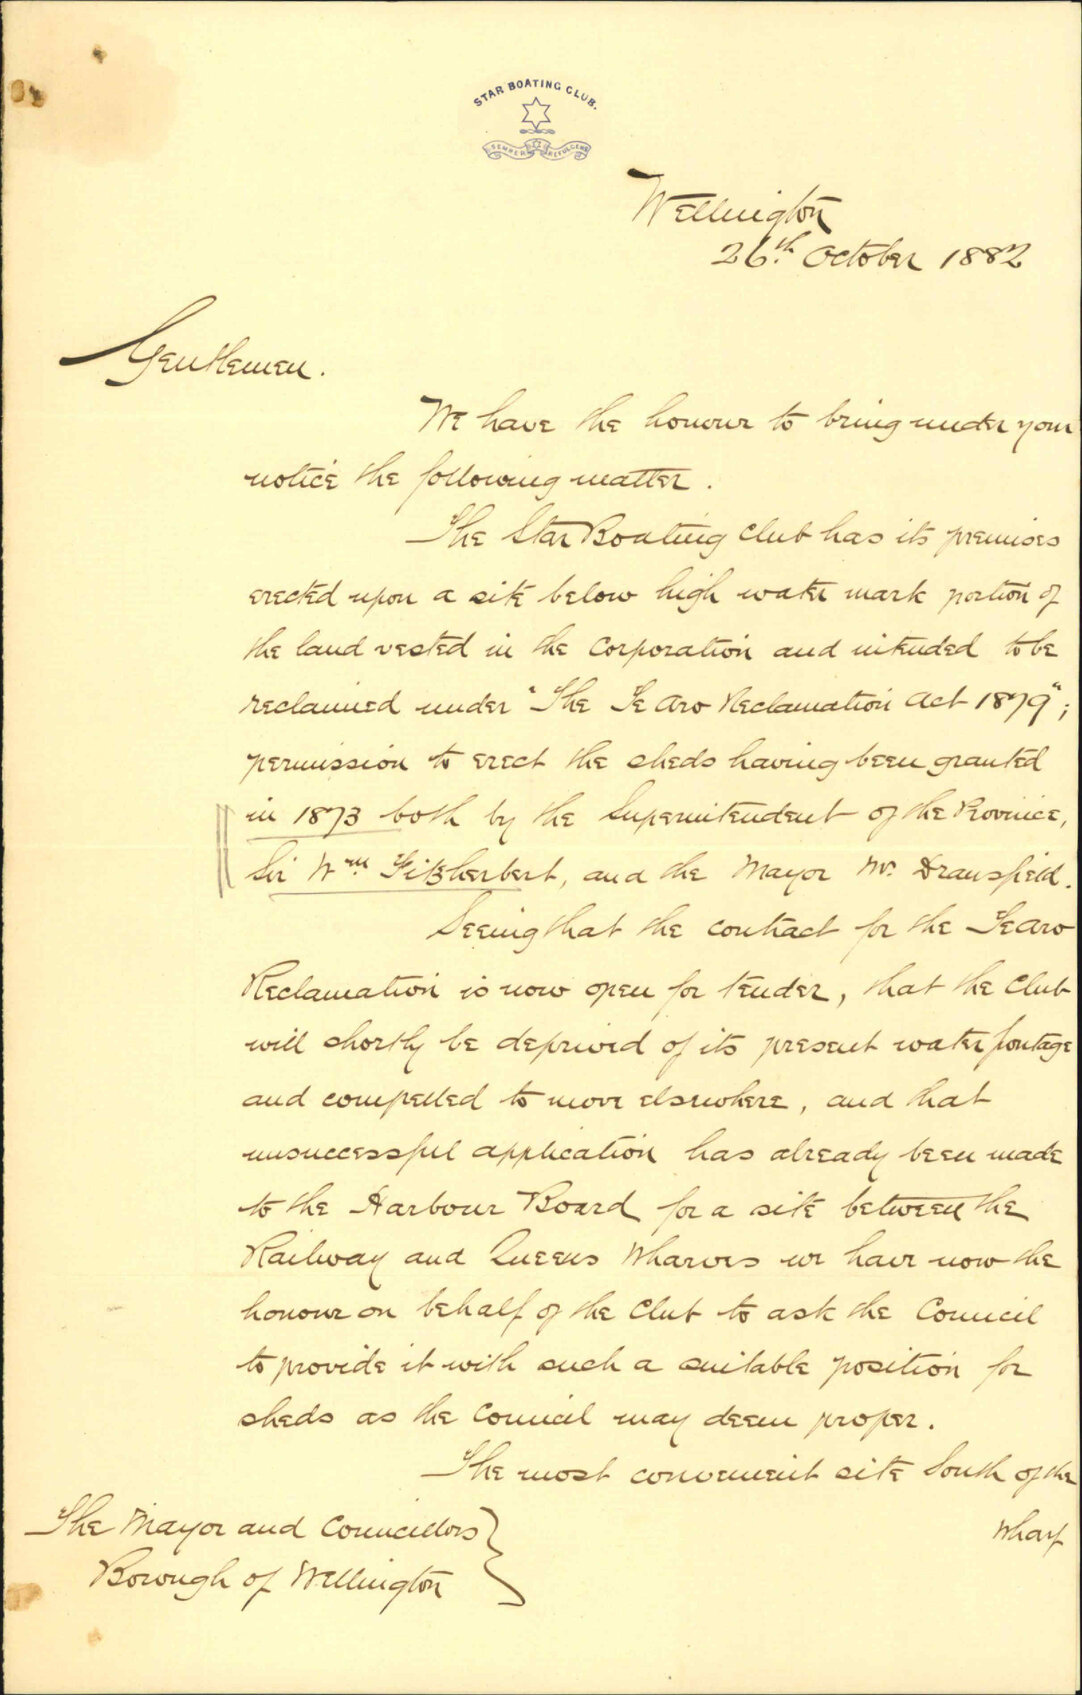 STAR BOATING CLUB.
SEMPER REFULGENS
Wellington
26th. October 1882
Gentlemen.
We have the honour to bring under your
notice the following matter.
The Star Boating Club has its premises
erected upon a site below high water mark portion of
the land vested in the Corporation and intended to be
reclaimed under "The Te Aro Reclamation Act 1879";
permission to erect the sheds having been granted
in 1873 both by the Superintendent of the Province,
Sir Wm. Fitzherbert, and the Mayor Mr. Dransfield.
Seeing that the contract for the Te Aro
Reclamation is now open for tender, that the Club
will shortly be deprived of its present water frontage
and compelled to move elsewhere, and that
unsuccessful application has already been made
to the Harbour Board for a site between the
Railway and Queens Wharves we have now the
honour on behalf of the Club to ask the Council
to provide it with such a suitable position for
sheds as the Council may deem proper.
The most convenient site South of the
Wharf
The Mayor and Councillors
Borough of Wellington